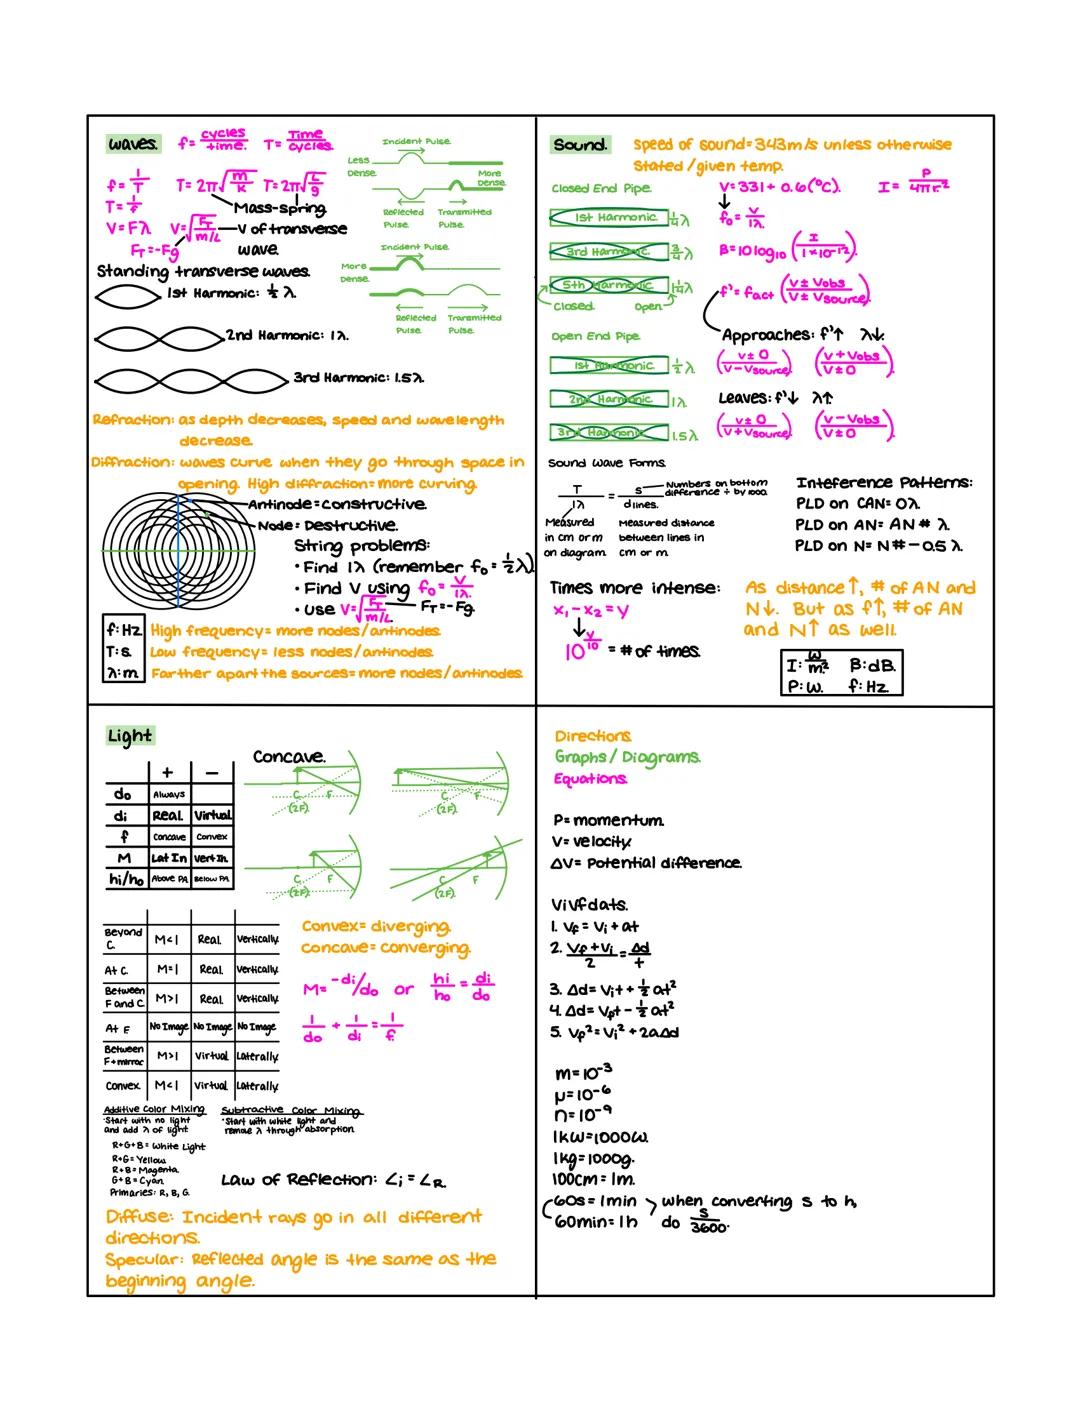 Waves.
f = cycles/time. T = Time/cycles.
f = 1/T T = 2π√(m/k) T = 2π√(L/g)
T = 1/f Mass-spring
V = Fλ V = √(FT/(m/L)) V of transverse
FT = -Fg wave.
Standing transverse waves.
1st Harmonic: ½ λ.
2nd Harmonic: 1λ.
3rd Harmonic: 1.5λ.
Incident Pulse.
Less Dense.
More Dense.
Reflected Pulse. Transmitted Pulse.
Incident Pulse.
More Dense.
Reflected Pulse. Transmitted Pulse.
Refraction: as depth decreases, speed and wavelength
decrease.
Diffraction: waves curve when they go through space in
opening. High diffraction = more curving.
Antinode = Constructive.
Node = Destructive.
String problems:
• Find 1λ (remember f₀ = ½λ)
• Find V using f₀ = V/1λ.
• Use V = √(FT/(m/L)) FT = -Fg.
f: Hz
T: s.
λ: m.
High frequency = more nodes/antinodes.
Low frequency = less nodes/antinodes.
Farther apart the sources = more nodes/antinodes.
Sound.
Speed of sound = 343m/s unless otherwise
stated/given temp.
Closed End Pipe.
1st Harmonic ¼λ
3rd Harmonic ¾λ
5th Harmonic 1¼λ
Closed. Open.
Open End Pipe.
1st Harmonic ½λ
2nd Harmonic 1λ
3rd Harmonic 1.5λ
V = 331 + 0.6(°C). I = P/4πr²
f₀ = V/1λ.
B = 10log₁₀ (I/1×10⁻¹²).
f' = fact (V ± Vobs/V ± Vsource)
Approaches: f'↑ λ↓.
(V ± 0/V - Vsource). (V + Vobs/V ± 0).
Leaves: f'↓ λ↑
(V ± 0/V + Vsource). (V - Vobs/V ± 0).
Sound Wave Forms.
T/1λ = s/dlines.
Numbers on bottom
difference ÷ by 1000.
Measured
in cm or m
on diagram.
Measured distance
between lines in
cm or m.
Inteference Patterns:
PLD on CAN = 0λ
PLD on AN = AN# λ.
PLD on N = N# - 0.5 λ.
Times more intense:
x₁ - x₂ = y
10^(y/10) = # of times.
As distance ↑, # of AN and
N↓. But as f↑, # of AN
and N↑ as well.
I: w/m². B: dB.
P: W. f: Hz.
Light
+ −
do Always
di Real. Virtual.
f Concave Convex
M Lat In Vert In.
hi/ho Above PA Below PA.
Concave.
C (2F). F
C (2F). F
C (2F). F
C (2F). F
Beyond C. M<1 Real. Vertically.
At C. M=1 Real. Vertically.
Between F and C. M>1 Real. Vertically.
At F No Image No Image No Image
Between F+mirror. M>1 Virtual. Laterally.
Convex. M<1 Virtual. Laterally.
Convex = diverging.
Concave = converging.
M = -di/do or hi/ho = di/do
1/do + 1/di = 1/f.
Additive Color Mixing
•Start with no light
and add λ of light.
R+G+B = White Light
R+G = Yellow.
R+B = Magenta.
G+B = Cyan.
Primaries: R, B, G.
Subtractive Color Mixing.
•Start with white light and
remove λ through absorption.
Law of Reflection: ∠i = ∠R.
Diffuse: Incident rays go in all different
directions.
Specular: Reflected angle is the same as the
beginning angle.
Directions.
Graphs/Diagrams.
Equations.
P = momentum.
V = velocity.
ΔV = Potential difference.
ViVfdats.
1. Vf = Vi + at
2. Vf + Vi/2 = Δd/t
3. Δd = Vit + ½at²
4. Δd = Vft - ½at²
5. Vf² = Vi² + 2aΔd
m = 10⁻³
μ = 10⁻⁶
n = 10⁻⁹
1kW = 1000W.
1kg = 1000g.
100cm = 1m.
60s = 1min
60min = 1h
when converting s to h,
do s/3600.